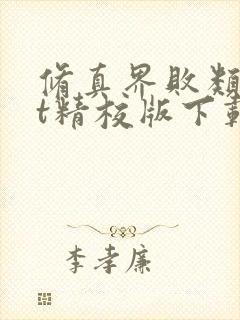 修真界敗類
t精校版下載
李孝廉